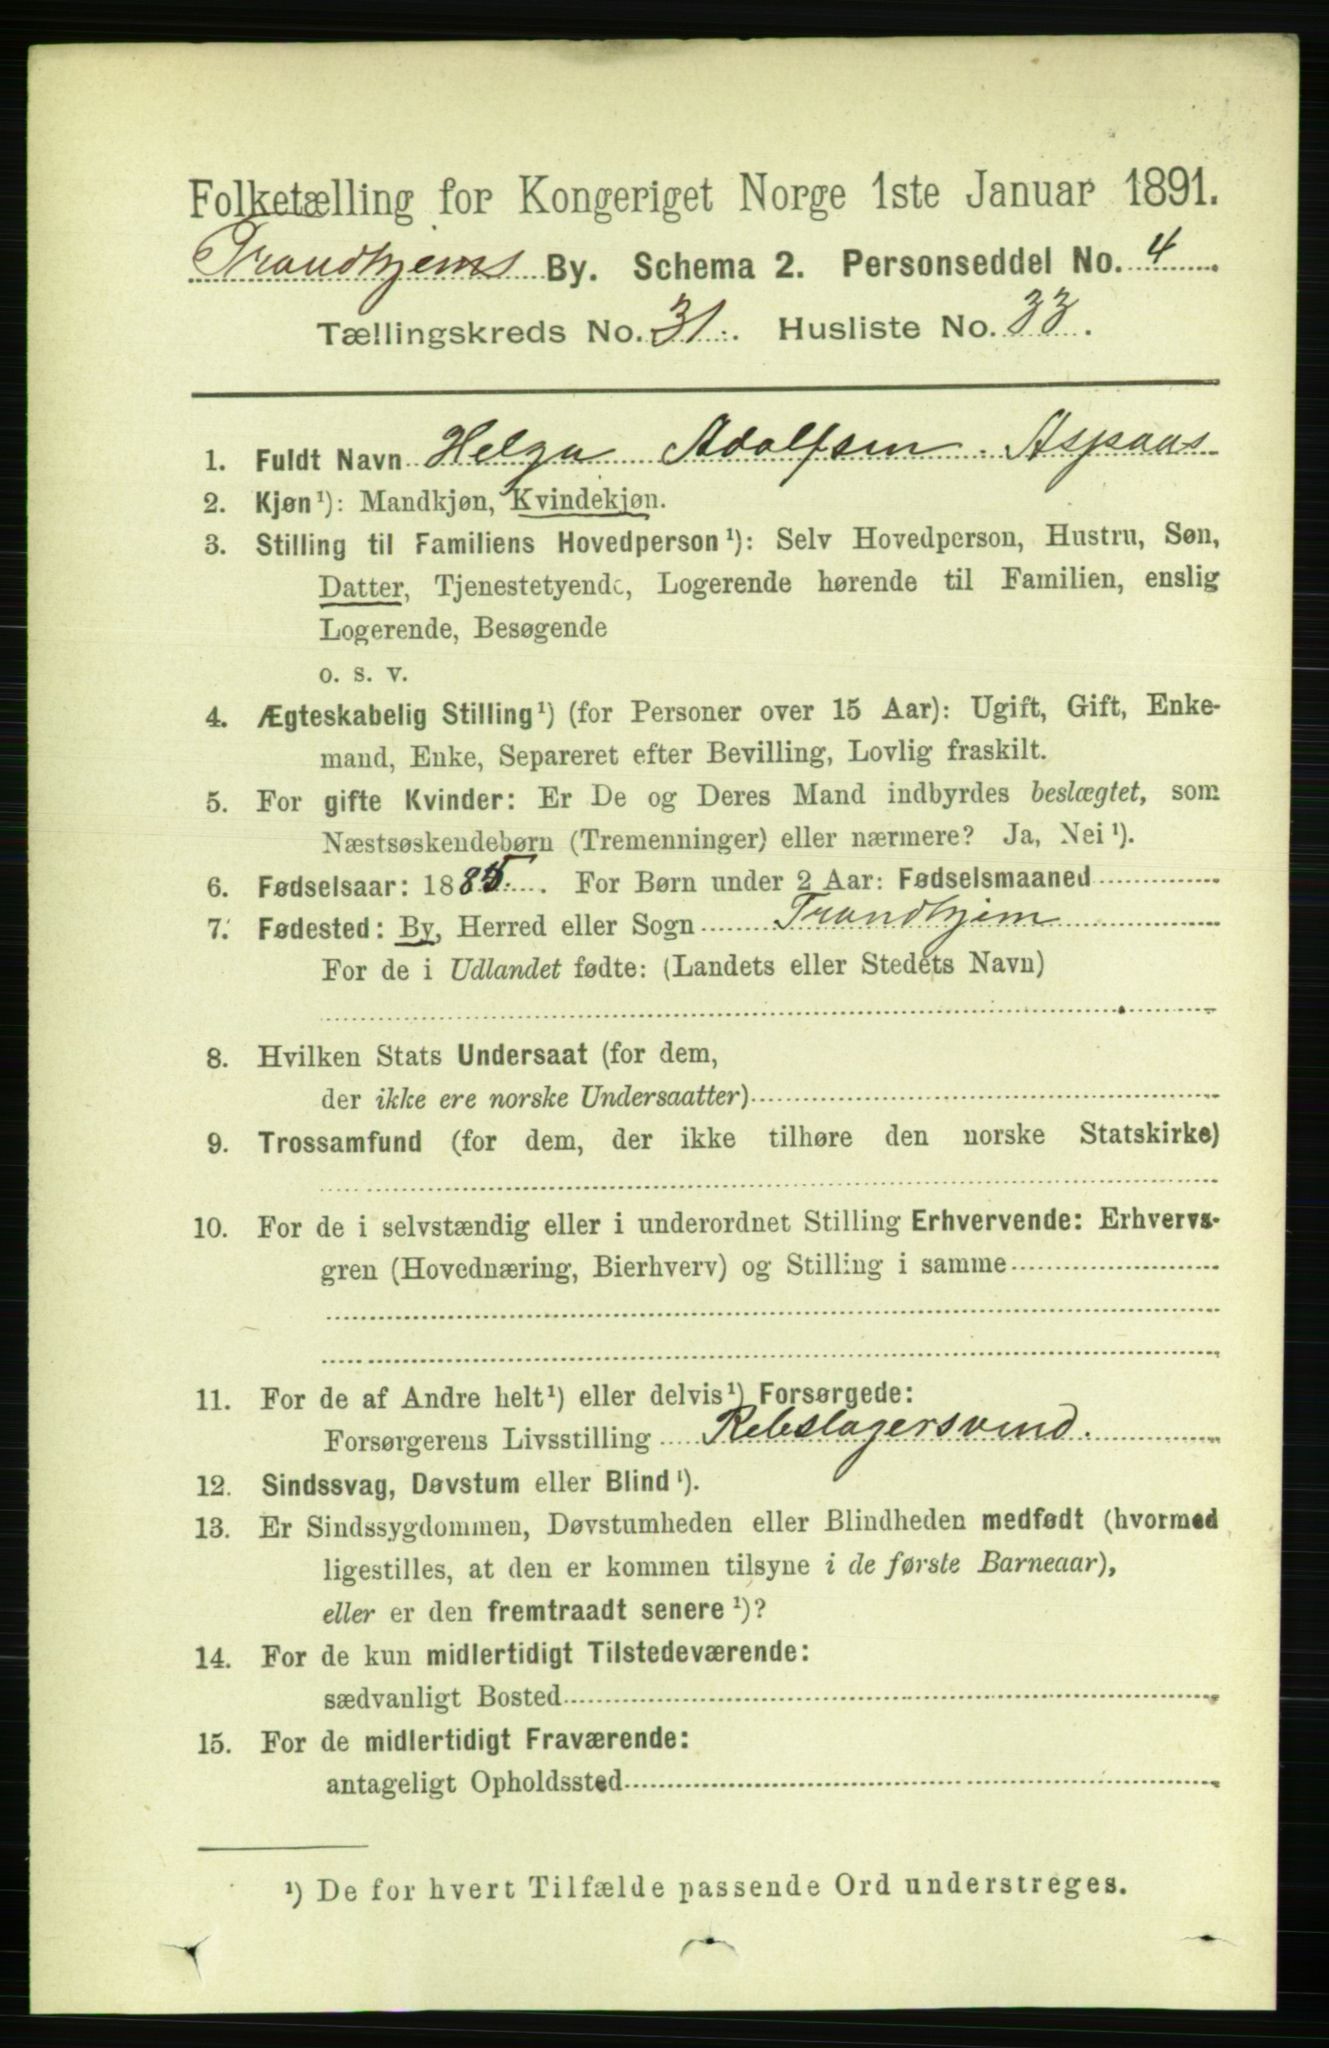 Folketælling for Kongeriget Norge 1ste Januar 1891.
Trondhjems By. Schema 2. Personseddel No. 4
Tællingskreds No. 31. Husliste No. 33.
1. Fuldt Navn Helga Adolfsen Aspaas
2. Kjøn¹): Mandkjøn, Kvindekjøn.
3. Stilling til Familiens Hovedperson¹): Selv Hovedperson, Hustru, Søn,
Datter, Tjenestetyende, Logerende hørende til Familien, enslig
Logerende, Besøgende
o. s. v.
4. Ægteskabelig Stilling¹) (for Personer over 15 Aar): Ugift, Gift, Enke-
mand, Enke, Separeret efter Bevilling, Lovlig fraskilt.
5. For gifte Kvinder: Er De og Deres Mand indbyrdes beslægtet, som
Næstsøskendebørn (Tremenninger) eller nærmere? Ja, Nei¹).
6. Fødselsaar: 1885. For Børn under 2 Aar: Fødselsmaaned
7. Fødested: By, Herred eller Sogn Trondhjem
For de i Udlandet fødte: (Landets eller Stedets Navn)
8. Hvilken Stats Undersaat (for dem,
der ikke ere norske Undersaatter)
9. Trossamfund (for dem, der ikke tilhøre den norske Statskirke)
10. For de i selvstændig eller i underordnet Stilling Erhvervende: Erhvervs-
gren (Hovednæring, Bierhverv) og Stilling i samme
11. For de af Andre helt¹) eller delvis¹) Forsørgede:
Forsørgerens Livsstilling Rebslagersvend.
12. Sindssvag, Døvstum eller Blind¹).
13. Er Sindssygdommen, Døvstumheden eller Blindheden medfødt (hvormed
ligestilles, at den er kommen tilsyne i de første Barneaar),
eller er den fremtraadt senere¹)?
14. For de kun midlertidigt Tilstedeværende:
sædvanligt Bosted
15. For de midlertidigt Fraværende:
antageligt Opholdssted
¹) De for hvert Tilfælde passende Ord understreges.